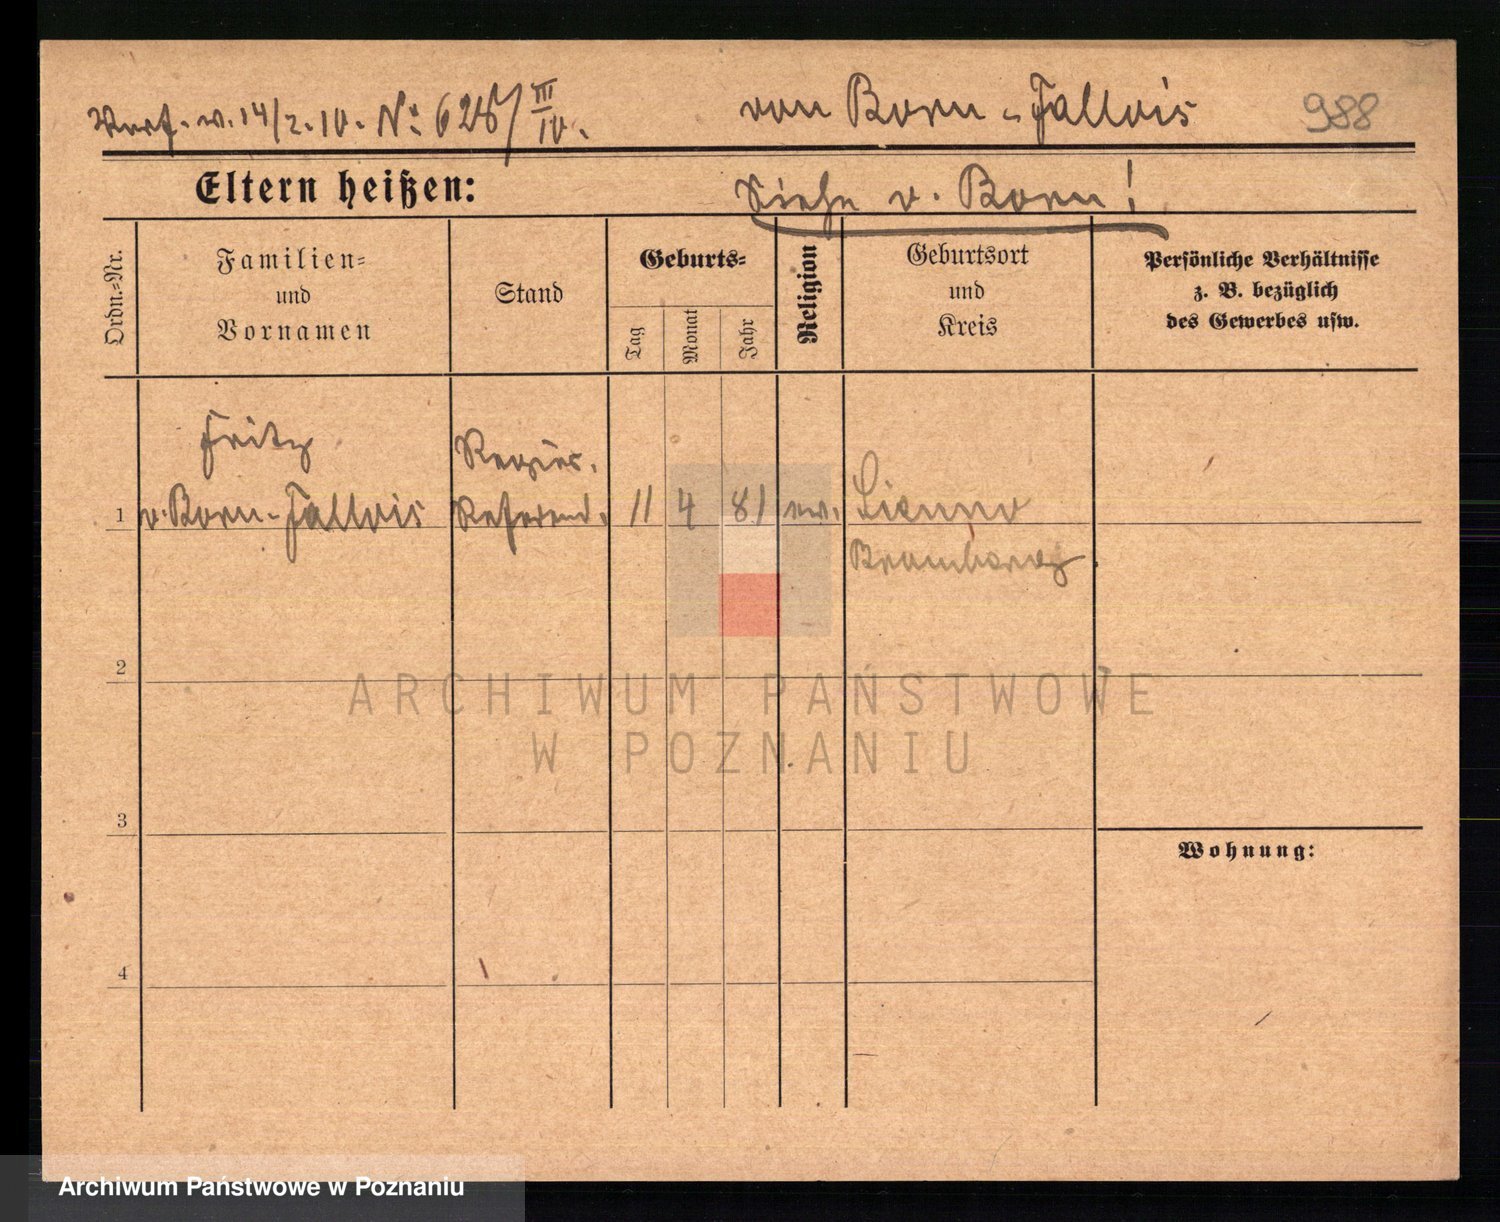 Verf. v. 14/2. 10. No: 628/III 10.
von Born-Fallois
988
Eltern heißen:
Siehe v. Born!
Ordn.-Nr.
Familien-
und
Vornamen
Stand
Geburts-
Tag
Monat
Jahr
Religion
Geburtsort
und
Kreis
Persönliche Verhältnisse
z. B. bezüglich
des Gewerbes usw.
1
Fritz
v. Born-Fallois
Regier.
Referend.
11
4
81
ev.
Sienno
Bromberg.
2
ARCHIWUM PAŃSTWOWE
W POZNANIU
3
Wohnung:
4
Archiwum Państwowe w Poznaniu